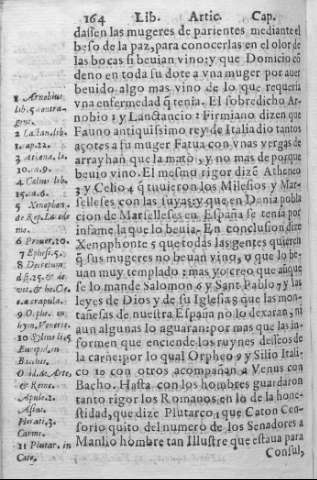 164 Lib. Artic. Cap.
dassen las mugeres de parientes mediante el
beso de la paz, para conocerlas en el olor de
las bocas si beuian vino: y que Domicio cõ
deno en toda su dote a vna muger por auer
beuido algo mas vino de lo que requeria
vna enfermedad q̃ tenia. El sobredicho Ar-
nobio 1 y Lanctancio 2 Firmiano dizen que
Fauno antiquissimo rey de Italia dio tantos
açotes a su muger Fatua con vnas vergas de
array han que la mato, y no mas de porque
beuio vino. El mesmo rigor dizẽ Atheneo
3 y Celio 4 q̃ tuuieron los Milesios y Mar-
selleses con las suyas: y que en Denia pobla
cion de Marselleses en España se tenia por
infame la que lo beuia. En conclusion dize
Xenophonte 5 que todas las gentes quierẽ
q̃ sus mugeres no beuan vino, o que lo be-
uan muy templado: mas yo creo que aũque
se lo mande Salomon 6 y Sant Pablo 7 y las
leyes de Dios y de su Iglesia 8 que las mon-
tañesas de nuestra España no lo dexaran, ni
aun algunas lo aguaran: por mas que las in-
formen que enciende los ruynes desseos de
la carne: por lo qual Orpheo 9 y Silio Itali-
co 10 con otros acompañan a Venus con
Bacho. Hasta con los hombres guardaron
tanto rigor los Romanos en lo de la hone-
stidad, que dize Plutarco, que Caton Cen-
sorio quito del numero de los Senadores a
Manlio hombre tan Illustre que estaua para
Consul,
1 Arnobius
lib. 5. contra
gent.
2 Lactan. lib.
1. cap. 22.
3 Athenæ. li.
10. ca. 9.
4 Celius lib.
5 Xenophon.
de Rep. Lacedæ
mo.
6 Prouer. 20.
7 Ephes. 5.
8 Decretum
d. 35.
9 Orphe. in
hym. Veneris.
10 Sylius li. 5
Euripid. in
Bacchis.
Ouid. de Arte,
& Reme.
Apule. 2.
Asini.
Horati. 3.
Carmi.
11 Plutar. in
Cato.